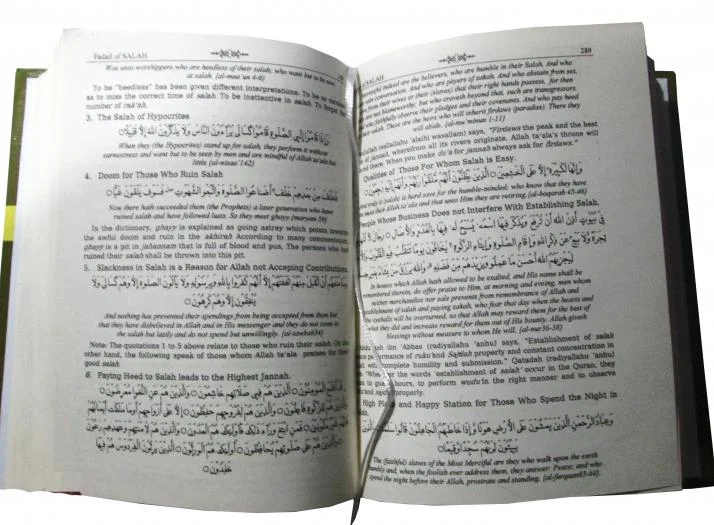 Fadail of SALAH
Woe unto worshippers who are heedless of their salah; who want but to be seen
at salah. [al-maa'un 4-6]
To be "heedless" has been given different interpretations: To be so
as to miss the correct time of salah. To be inattentive in salah. To forget
number of rak'ah.
3. The Salah of Hypocrites
وَإِذَا قَامُوْا إِلَى الصَّلٰوةِ قَامُوْا كُسَالٰى يُرَآءُوْنَ النَّاسَ وَلَا يَذْكُرُوْنَ اللّٰهَ إِلَّا قَلِيْلًا
When they (the Hypocrites) stand up for salah, they perform it without
earnestness and want but to be seen by men and are mindful of Allah ta'ala but
little. [al-nisaa'142]
4. Doom for Those Who Ruin Salah
فَخَلَفَ مِنْ بَعْدِهِمْ خَلْفٌ أَضَاعُوا الصَّلٰوةَ وَاتَّبَعُوا الشَّهَوٰتِ فَسَوْفَ يَلْقَوْنَ غَيًّا
Now there hath succeeded them (the Prophets) a later generation who have
ruined salah and have followed lusts. So they meet ghayy. [maryam 59]
In the dictionary, ghayy is explained as going astray which points towards
the awful doom and ruin in the akhirah According to many commentators,
ghayy is a pit in jahannam that is full of blood and pus, The persons who had
ruined their salah shall be thrown into this pit.
5. Slackness in Salah is a Reason for Allah not Acceping Contributions.
وَمَا مَنَعَهُمْ أَنْ تُقْبَلَ مِنْهُمْ نَفَقٰتُهُمْ إِلَّا أَنَّهُمْ كَفَرُوْا بِاللّٰهِ وَبِرَسُوْلِهٖ وَلَا يَأْتُوْنَ الصَّلٰوةَ إِلَّا وَهُمْ كُسَالٰى وَلَا
يُنْفِقُوْنَ إِلَّا وَهُمْ كٰرِهُوْنَ
And nothing has prevented their spendings from being accepted from them but
that they have disbelieved in Allah and in His messenger and they do not come to
the salah but lastly and do not spend but unwillingly. [al-tawbah54]
Note: The quotations 1 to 5 above relate to those who ruin their salah. On the
other hand, the following speak of those whom Allah ta'ala praises for their
good salah.
6. Paying Heed to Salah leads to the Highest Jannah.
خٰلِدُوْنَ
SALAH
289
Successful indeed are the believers, who are humble in their Salah. And who
conversation. And who are payers of zakah. And who abstain from sex,
from their wives or their (slaves) that their right hands possess, for then
are not blameworthy; but who craveth beyond that, such are transgressors.
who faithfully observe their pledges and their covenants. And who pay heed
their salah. These are the heirs who will inherit firdaws (paradise). There they
will abide. [al-mu'minun 1-11]
(sallallahu 'alaihi wasallam) says, "Firdaws the peak and the best
of jannah, wherefrom all its rivers originate. Allah ta'ala's throne will
there. When you make du'a for jannah always ask for firdaws."
Qualities of Those For Whom Salah is Easy.
وَإِنَّهَا لَكَبِيْرَةٌ إِلَّا عَلَى الْخٰشِعِيْنَ الَّذِيْنَ يَظُنُّوْنَ أَنَّهُمْ مُلٰقُوْا رَبِّهِمْ وَأَنَّهُمْ إِلَيْهِ رٰجِعُوْنَ
and truly it (salah) is hard save for the humble-minded; who know that they have
to meet their Allah ta'ala and that unto Him they are retiring. [al-baqarah 45-46]
People Whose Business Does not Interfere With Establishing Salah.
In houses which Allah hath allowed to be exalted; and His name shall be
remembered therein, do offer praise to Him, at morning and eveing, men whom
neither merchandize nor sale prevents from remembrance of Allah and
establishment of salah and paying zakah, who fear that day when the hearts and
the eyeballs will be overturned, so that Allah may reward them for the best of
what they did and increase reward for them out of His bounty. Allah giveth
blessings without measure to whom He will. [al-nur36-38]
ibn 'Abbas (radiyallahu 'anhu) says, "Establishment of salah
performance of ruku' and Sajdah properly and constant concentration in
with complete humility and submission." Qatadah (radiyallahu 'anhu)
the words 'establishment of salah' occur in the Quran, they
hours, to perform wudu in the right manner and to observe
properly.
High Place and Happy Station for Those Who Spend the Night in
وَعِبَادُ الرَّحْمٰنِ الَّذِيْنَ يَمْشُوْنَ عَلَى الْأَرْضِ هَوْنًا وَإِذَا خَاطَبَهُمُ الْجَاهِلُوْنَ قَالُوْا سَلٰمًا
يَبِيْتُوْنَ لِرَبِّهِمْ سُجَّدًا وَقِيَامًا
The (faithful) slaves of the Most Merciful are they who walk upon the earth
humbly and, when the foolish ever address them, they answer; Peace; and who
spend the night before their Allah, prostrate and standing. [al-furqaan63-64].